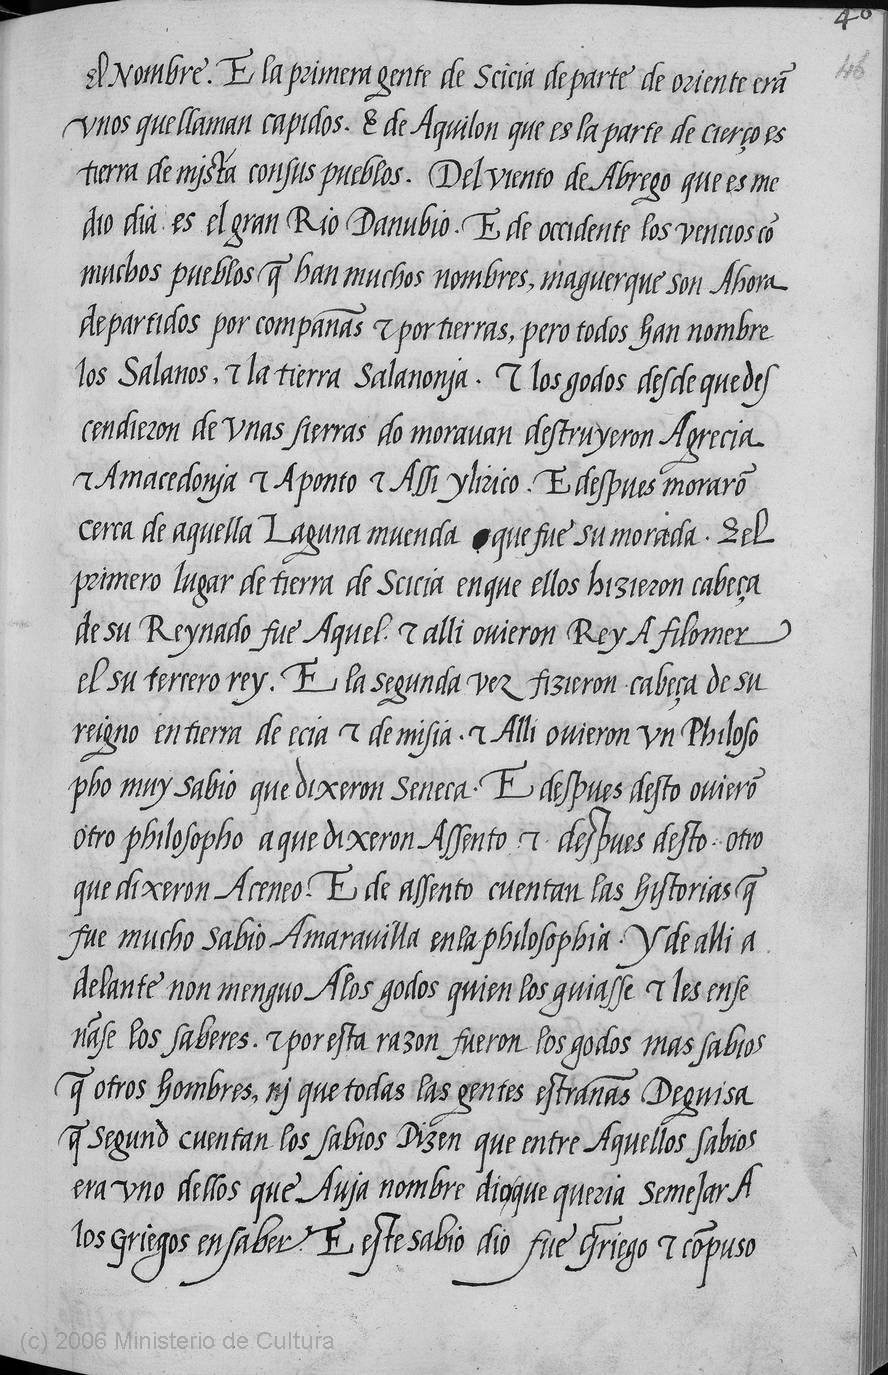 40
46
el Nombre. E la primera gente de Scicia de parte de oriente erã
vnos que llaman capidos. & de Aquilon que es la parte de cierço es
tierra de mistã con sus pueblos. Del viento de Abrego que es me
dio dia es el gran Rio Danubio. E de occidente los vencios cõ
muchos pueblos q̃ han muchos nombres, maguer que son Ahora
departidos por compañas τ por tierras, pero todos han nombre
los Salanos, τ la tierra Salanonja. τ los godos desde que des
cendieron de vnas sierras do morauan destruyeron Agrecia
τ Amacedonja τ Aponto τ Assi ylirico. E despues morarõ
cerca de aquella Laguna muenda que fue su morada. & el
primero lugar de tierra de Scicia en que ellos hizieron cabeça
de su Reynado fue Aquel. τ alli ouieron Rey A filomer
el su tercero rey. E la segunda vez fizieron cabeça de su
reigno en tierra de ecia τ de misia. τ Alli ouieron vn Philoso
pho muy sabio que dixeron Seneca. E despues desto ouierõ
otro philosopho a que dixeron Assento τ despues desto otro
que dixeron Aceneo. E de assento cuentan las historias q̃
fue mucho sabio Amarauilla en la philosophia. Y de alli a
delante non menguo Alos godos quien los guiasse τ les ense
ñase los saberes. τ por esta razon fueron los godos mas sabios
q̃ otros hombres, nj que todas las gentes estrañas De guisa
q̃ segund cuentan los sabios Dizen que entre Aquellos sabios
era vno dellos que Auja nombre dio que queria semejar A
los Griegos en saber. E este sabio dio fue Griego τ cõpuso
(c) 2006 Ministerio de Cultura